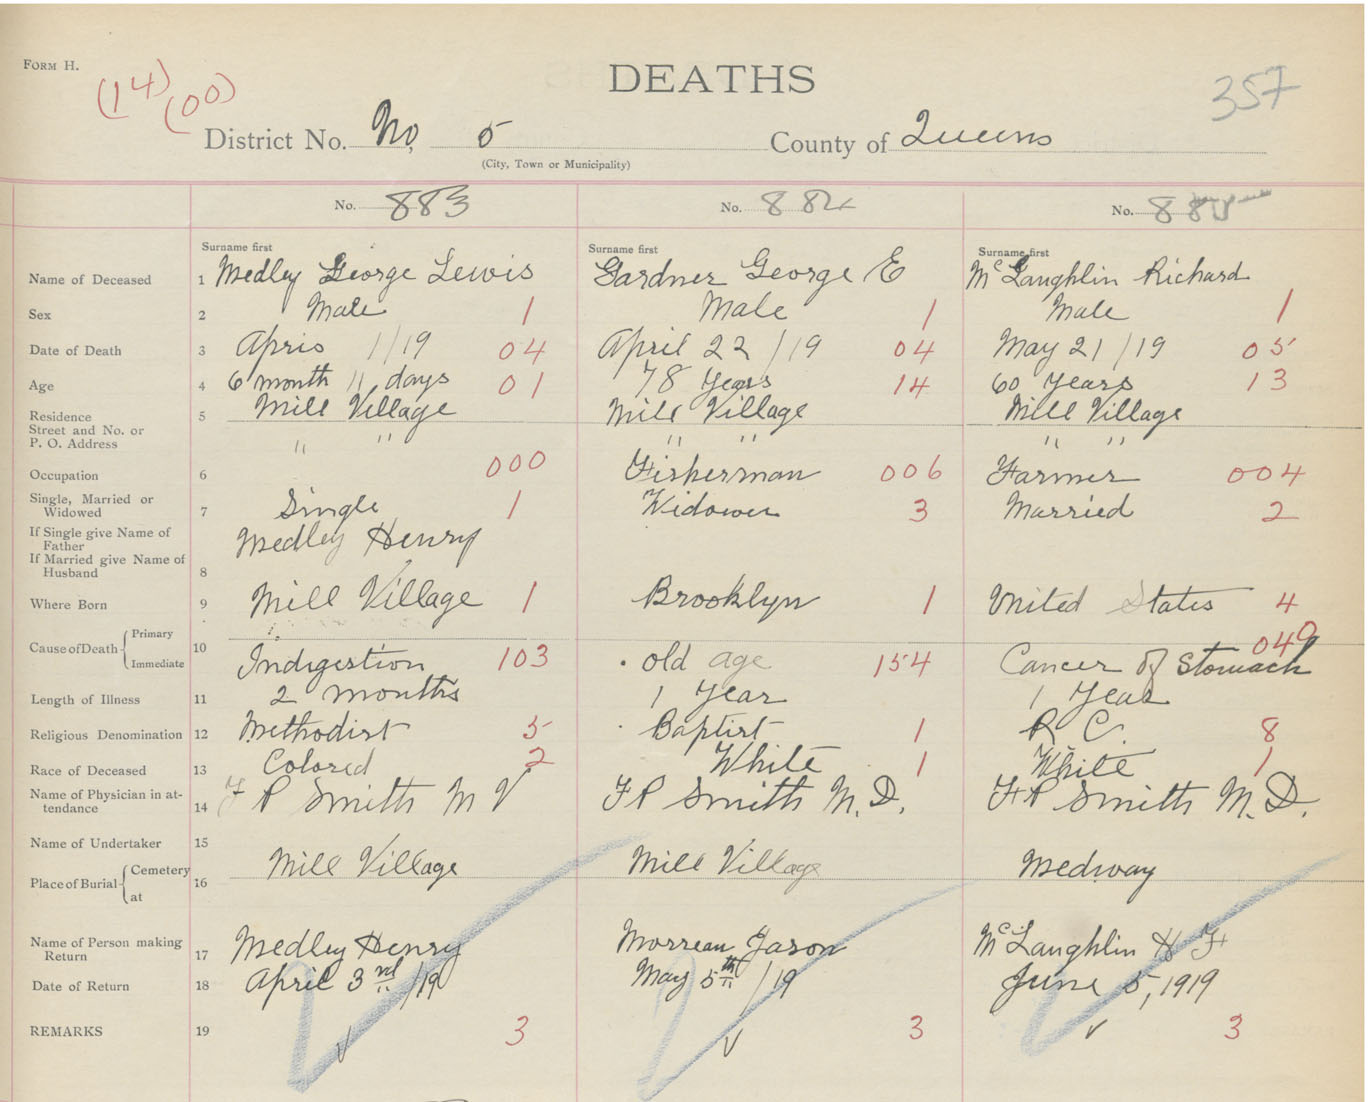 FORM H.
(14) (00)
DEATHS
357
District No. No, 5 County of Queens
(City, Town or Municipality)
No. 883 No. 884 No. 885
Surname first Surname first Surname first
Name of Deceased 1 Medley George Lewis Gardner George E McLaughlin Richard
Sex 2 Male 1 Male 1 Male 1
Date of Death 3 Apris 1/19 04 April 22/19 04 May 21/19 05
Age 4 6 month 11 days 01 78 Years 14 60 Years 13
Residence 5 Mill Village Mill Village Mill Village
Street and No. or
P. O. Address " " " " " "
Occupation 6 000 Fisherman 006 Farmer 004
Single, Married or
Widowed 7 Single 1 Widower 3 Married 2
If Single give Name of
Father Medley Henry
If Married give Name of
Husband 8
Where Born 9 Mill Village 1 Brooklyn 1 United States 4
Cause of Death { Primary 10
Immediate Indigestion 103 old age 154 Cancer of Stomach 040
Length of Illness 11 2 months 1 Year 1 Year
Religious Denomination 12 Methodist 5 Baptist 1 R C. 8
Race of Deceased 13 Colored 2 White 1 White 1
Name of Physician in at-
tendance 14 F P Smith M V F P Smith M. D. F P Smith M. D.
Name of Undertaker 15
Place of Burial { Cemetery 16 Mill Village Mill Village Medway
at
Name of Person making
Return 17 Medley Henry Morreau Jason McLaughlin H F
Date of Return 18 April 3rd/19 May 5th/19 June 5, 1919
REMARKS 19 3 3 3